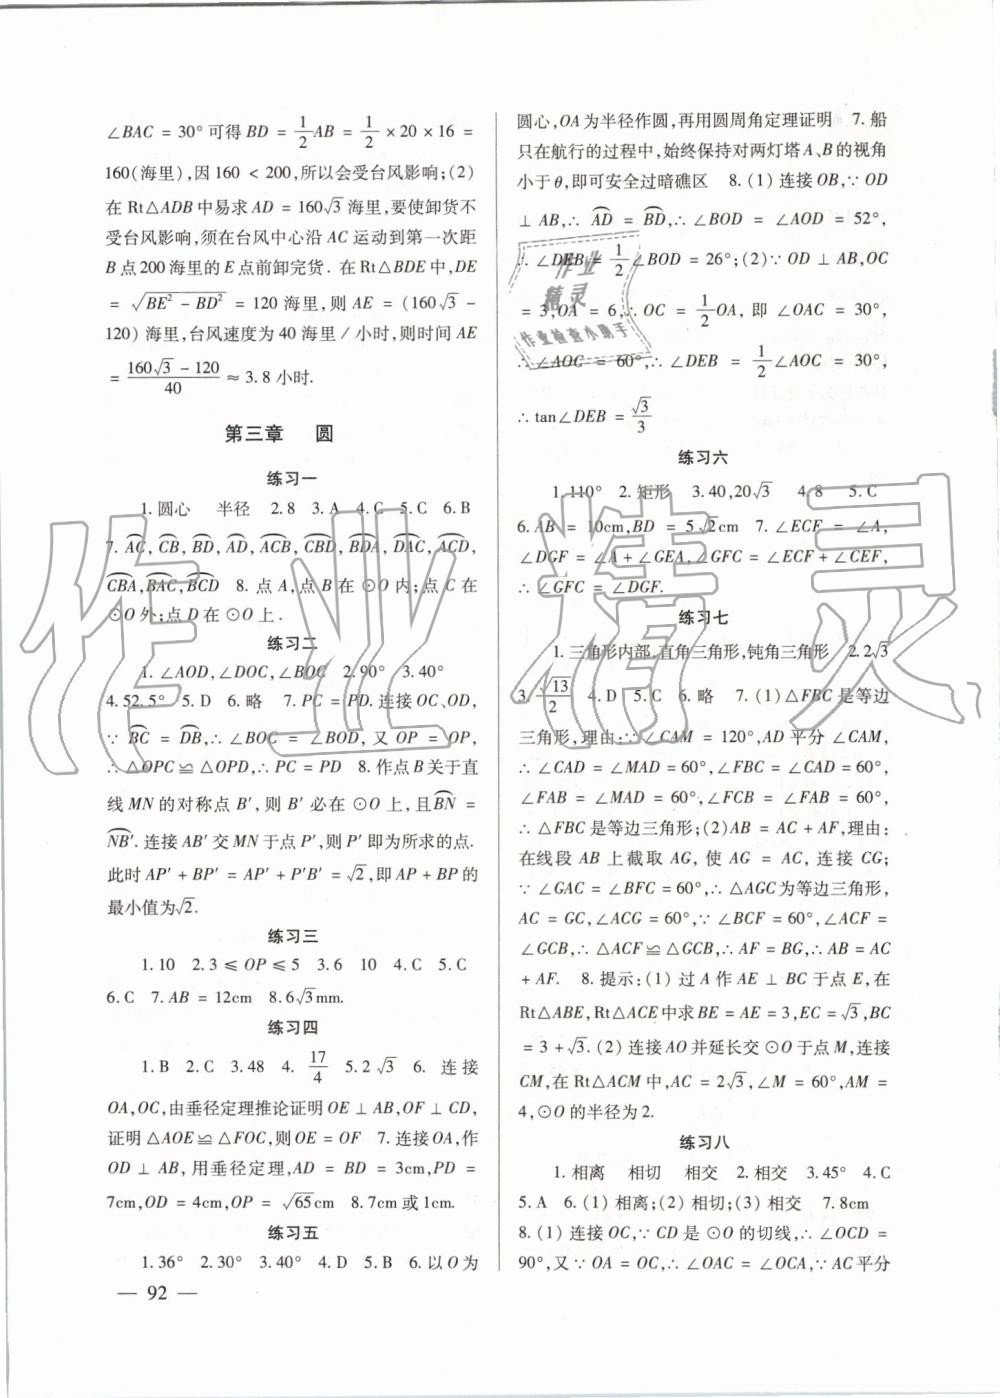 ∠BAC = 30°可得 BD = 1/2 AB = 1/2 × 20 × 16 =
160(海里),因 160 < 200,所以会受台风影响;(2)
在 Rt△ADB 中易求 AD = 160√3 海里,要使卸货不
受台风影响,须在台风中心沿 AC 运动到第一次距
B 点 200 海里的 E 点前卸完货. 在 Rt△BDE 中,DE
= √(BE² − BD²) = 120 海里,则 AE = (160√3 −
120) 海里,台风速度为 40 海里/小时,则时间 AE
= (160√3 − 120)/40 ≈ 3.8 小时.
第三章 圆
练习一
1. 圆心 半径 2.8 3. A 4. C 5. C 6. B
7. ⌒AC,⌒CB,⌒BD,⌒AD,⌒ACB,⌒CBD,⌒BDA,⌒DAC,⌒ACD,
⌒CBA,⌒BAC,⌒BCD 8. 点 A,点 B 在 ⊙O 内;点 C 在
⊙O 外;点 D 在 ⊙O 上.
练习二
1. ∠AOD,∠DOC,∠BOC 2.90° 3.40°
4.52.5° 5. D 6. 略 7. PC = PD. 连接 OC、OD,
∵ ⌒BC = ⌒DB,∴ ∠BOC = ∠BOD, 又 OP = OP,
∴ △OPC ≌ △OPD,∴ PC = PD 8. 作点 B 关于直
线 MN 的对称点 B′,则 B′ 必在 ⊙O 上,且 ⌒BN =
⌒NB′. 连接 AB′ 交 MN 于点 P′,则 P′ 即为所求的点.
此时 AP′ + BP′ = AP′ + P′B′ = √2,即 AP + BP 的
最小值为√2.
练习三
1.10 2.3 ≤ OP ≤ 5 3.6 10 4. C 5. C
6. C 7. AB = 12cm 8.6√3mm.
练习四
1. B 2. C 3.48 4. 17/4 5.2√3 6. 连接
OA,OC,由垂径定理推论证明 OE ⊥ AB,OF ⊥ CD,
证明 △AOE ≌ △FOC,则 OE = OF 7. 连接 OA,作
OD ⊥ AB, 用垂径定理,AD = BD = 3cm,PD =
7cm,OD = 4cm,OP = √65cm 8.7cm 或 1cm.
练习五
1.36° 2.30° 3.40° 4. D 5. B 6. 以 O 为
— 92 —
圆心,OA 为半径作圆,再用圆周角定理证明 7. 船
只在航行的过程中,始终保持对两灯塔 A、B 的视角
小于 θ,即可安全过暗礁区 8. (1) 连接 OB,∵ OD
⊥ AB,∴ ⌒AD = ⌒BD,∴ ∠BOD = ∠AOD = 52°,
∴ ∠DEB = 1/2 ∠BOD = 26°;(2)∵ OD ⊥ AB,OC
= 3,OA = 6,∴ OC = 1/2 OA, 即 ∠OAC = 30°,
∴ ∠AOC = 60°,∴ ∠DEB = 1/2 ∠AOC = 30°,
∴ tan∠DEB = √3/3
练习六
1.110° 2. 矩形 3.40,20√3 4.8 5. C
6. AB = 10cm,BD = 5√2cm 7. ∠ECF = ∠A,
∠DGF = ∠A + ∠GEA,∠GFC = ∠ECF + ∠CEF,
∴ ∠GFC = ∠DGF.
练习七
1. 三角形内部,直角三角形,钝角三角形 2.2√3
3. √13/2 4. D 5. C 6. 略 7. (1) △FBC 是等边
三角形,理由:∵ ∠CAM = 120°,AD 平分 ∠CAM,
∴ ∠CAD = ∠MAD = 60°,∠FBC = ∠CAD = 60°,
∠FAB = ∠MAD = 60°,∠FCB = ∠FAB = 60°,
∴ △FBC 是等边三角形;(2)AB = AC + AF,理由:
在线段 AB 上截取 AG, 使 AG = AC, 连接 CG;
∵ ∠GAC = ∠BFC = 60°,∴ △AGC 为等边三角形,
AC = GC,∠ACG = 60°,∵ ∠BCF = 60°,∠ACF =
∠GCB,∴ △ACF ≌ △GCB,∴ AF = BG,∴ AB = AC
+ AF. 8. 提示:(1) 过 A 作 AE ⊥ BC 于点 E,在
Rt△ABE,Rt△ACE 中求 BE = AE = 3,EC = √3,BC
= 3 + √3. (2) 连接 AO 并延长交 ⊙O 于点 M,连接
CM,在 Rt△ACM 中,AC = 2√3,∠M = 60°,AM =
4,⊙O 的半径为 2.
练习八
1. 相离 相切 相交 2. 相交 3.45° 4. C
5. A 6. (1) 相离;(2) 相切;(3) 相交 7.8cm
8. (1) 连接 OC,∵ CD 是 ⊙O 的切线,∴ ∠OCD =
90°,又 ∵ OA = OC,∴ ∠OAC = ∠OCA,∵ AC 平分
作业精灵
作业
精灵
作业检查小助手